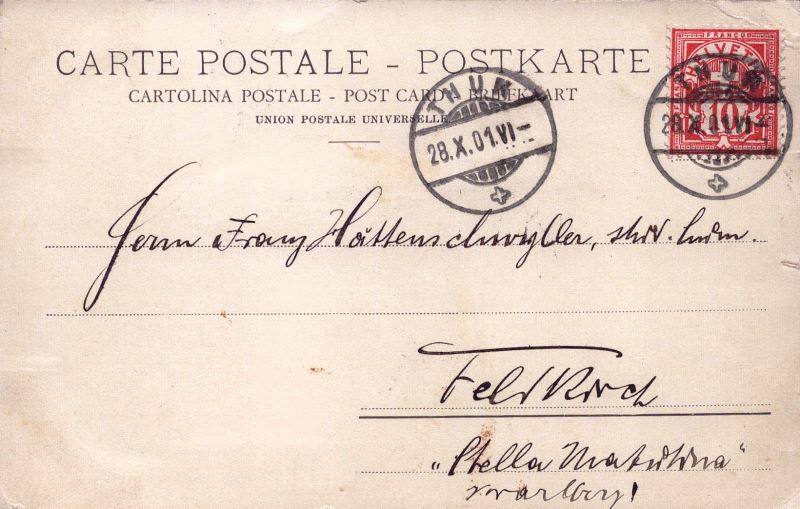 CARTE POSTALE - POSTKARTE
CARTOLINA POSTALE - POST CARD - BRIEFKAART
UNION POSTALE UNIVERSELLE
THUN
28.X.01.VI-
FRANCO
HELVETIA
10
THUN
28.X.01.VI-
Herrn Franz Hättenschwyller,
Feldkirch
„Stella Matutina"